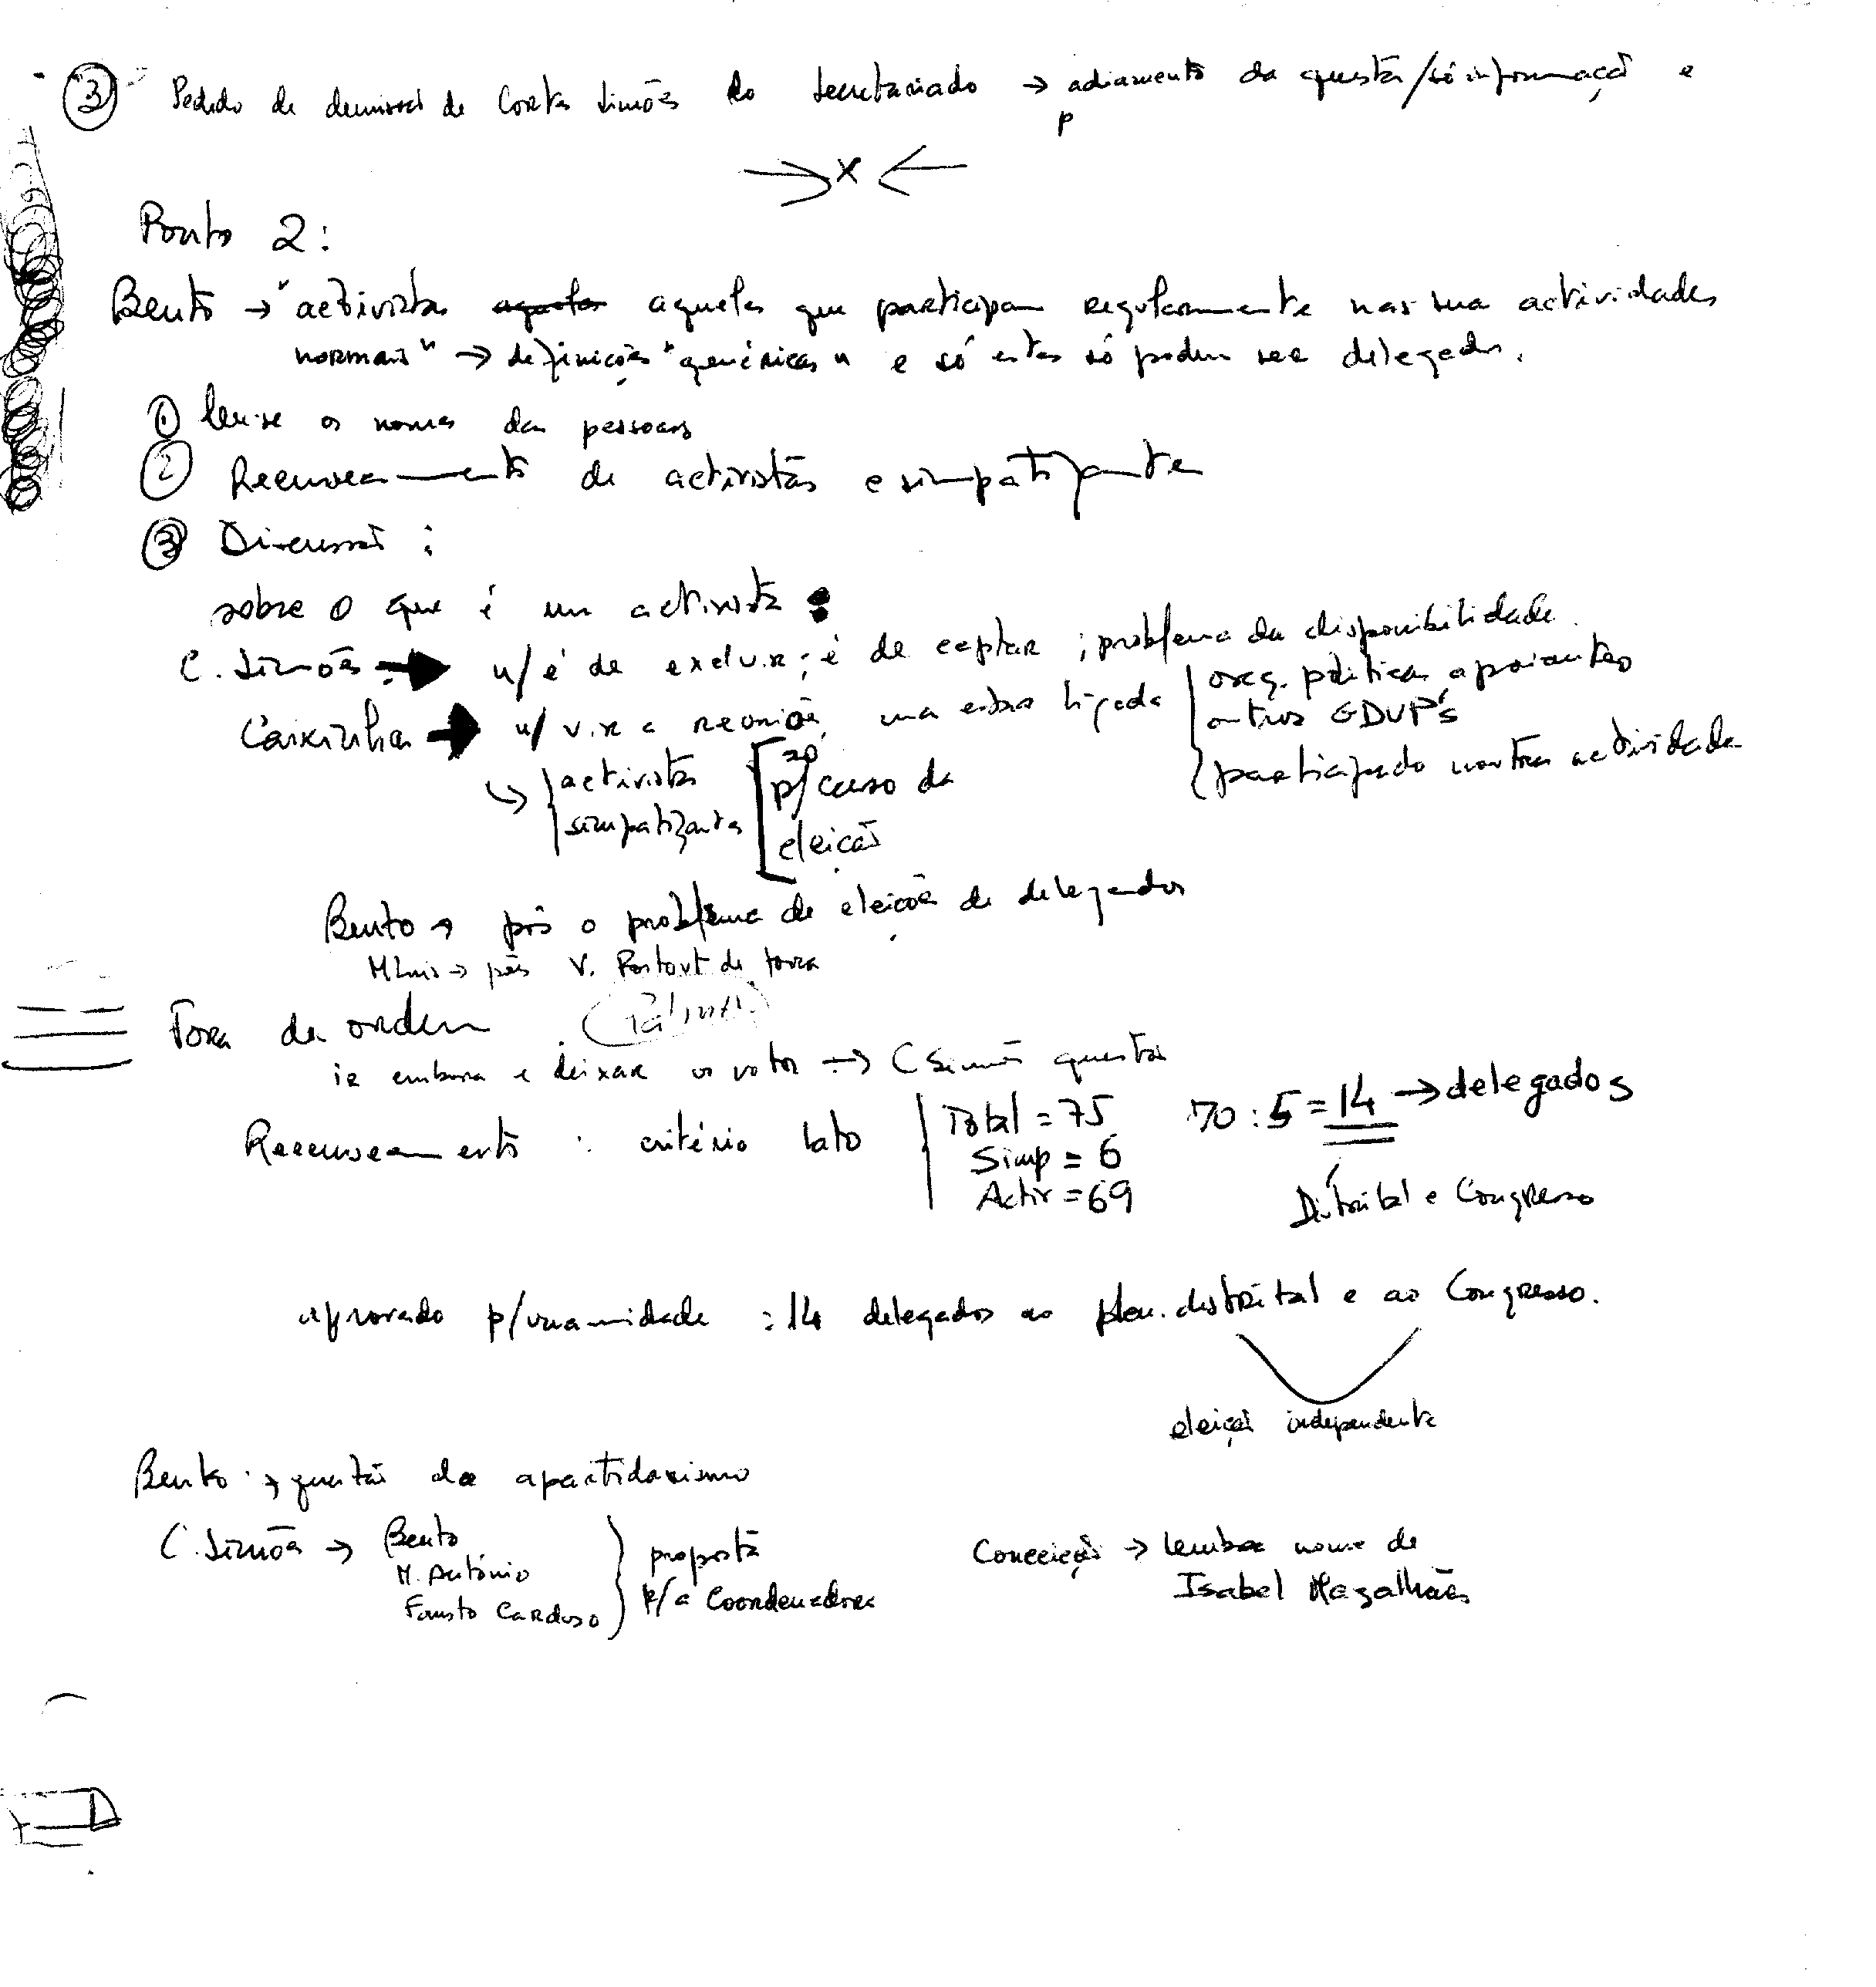 ③ Pedido de demissão de Costa Simões do secretariado → adiamento da questão/só informação e
p
→ x ←
Ponto 2:
Bento → "activistas aqueles que participam regularmente nas sua actividades
normais" → definições "genéricas" e só estes só podem ser delegados.
① leu-se os nomes das pessoas
② Recenseamento de activistas e simpatizante
③ Discussão :
sobre o que é um activista :
C. Simões → n/ é de excluir; é de captar ; problema da disponibilidade.
Caixinha → n/ vir a reuniões, mas estar ligada { org. políticas apoiantes
outros GDUP's
participado noutras actividade
↳ { activistas
simpatizantes [ p/ caso da
eleição
Bento → pôs o problema de eleições de delegados
MLuis → pôs V. de fora
Fora da ordem
ir embora e deixar os votos → C Simões questão
Recenseamento : critério lato { Total = 75
Simp = 6
Activ = 69
70 : 5 = 14 → delegados
Distrital e Congresso
aprovado p/unamidade : 14 delegados ao plen. distrital e ao Congresso.
eleição independente
Bento → questão do apartidarismo
C. Simões → Bento
M. António
Fausto Cardoso } proposta
p/ a Coordenadora
Conceição → lembra nome de
Isabel Magalhães